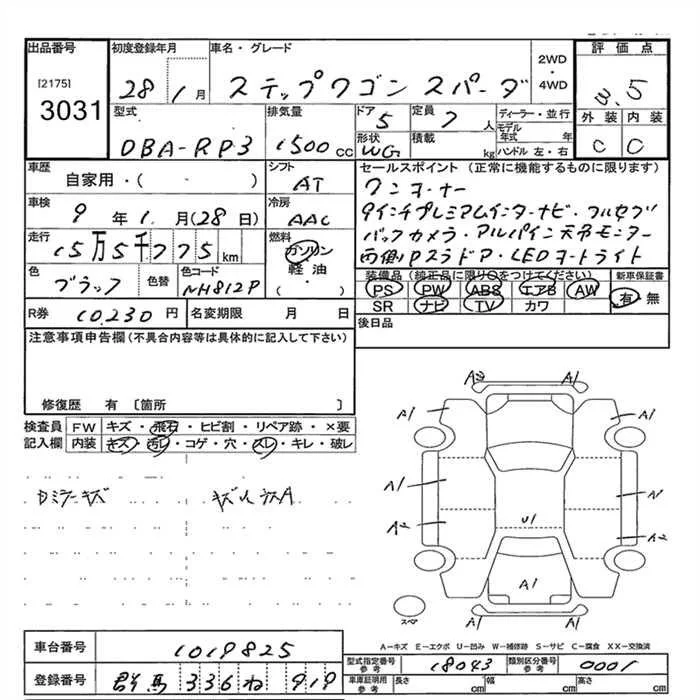 出品番号 初度登録年月 車名・グレード 2WD・4WD 評価点
[2175] 3031 28 1月 ステップワゴン スパーダ 3.5
型式 排気量 ドア 5 定員 7人 ディーラー・並行 外装 内装
DBA-RP3 1500cc 形状 WG 積載 kg モデル年式 年 ハンドル 左・右 C C
車歴 自家用・( ) シフト AT セールスポイント (正常に機能するものに限ります)
車検 9年1月(28日) 冷房 AAC ワンオーナー
走行 15万5千775km 燃料 ガソリン 軽油 ( ) 9インチプレミアムインターナビ・フルセグ
バックカメラ・アルパイン天吊モニター
両側Pスラドア・LEDヘッドライト
色 ブラック 色替 色コード NH812P 装備品(純正品に限り○をつけてください) 新車保証書
PS PW ABS エアB AW 有・無
SR ナビ TV カワ
R券 10,230円 名変期限 月 日 後日品
注意事項申告欄(不具合内容等は具体的に記入して下さい)
修復歴 有 〔箇所 〕
検査員 FW キズ・飛石・ヒビ割・リペア跡・×要
記入欄 内装 キズ・汚レ・コゲ・穴・スレ・キレ・破レ
Dミラーキズ
A2 A1
A1 A1
A1 A1
A2 U1 A2
A1
A1
スペア
A-キズ E-エクボ U-凹み W-補修跡 S-サビ C-腐食 XX-交換済
車台番号 1019825
型式指定番号 参考 18043 類別区分番号 参考 0001
登録番号 群馬 336 ね 919
車庫証明用 参考 長さ cm 幅 cm 高さ cm